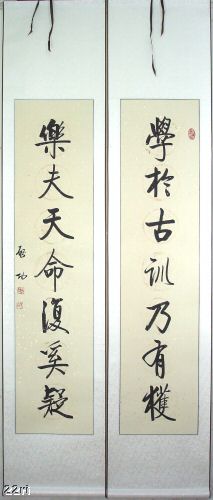 學於古訓乃有獲
樂夫天命復奚疑
啟功
22rh